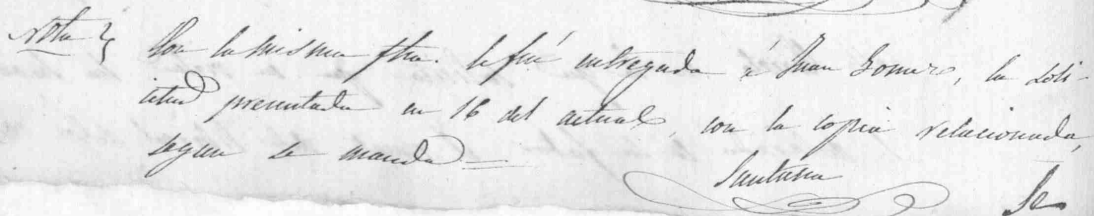 Nota} Con la misma fha. le fué entregada á Juan Gomez, la soli-
citud presentada en 16 del actual, con la copia relacionada,
segun se manda =
Santana
Se